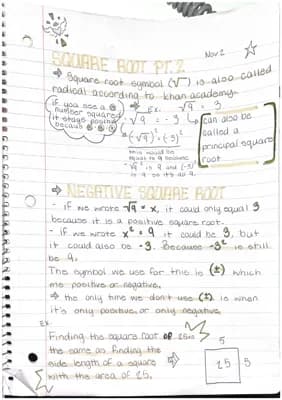 Nov 2
SQUARE ROOT PT. 2
⇒ Square root symbol (√‾) is also called
radical according to khan academy.
if you see a ⊖
number squared
it stays positive
because ⊖·⊖=⊕
Ex.
√9 = 3
√9 = -3
(√9)² = (-3)²
this would be
equal to 9 because
can also be
called a
principal square
root
⇒ NEGATIVE SQUARE ROOT
- if we wrote √9 = x, it could only equal 3
because it is a positive square root.
- if we wrote x² = 9 it could be 3, but
it could also be -3. Because -3² is still
be 9.
The symbol we use for this is (±) which
me positive or negative.
⇒ the only time we don't use (±) is when
it's only positive, or only negative.
Ex.
Finding the square root of 25 is
the same as finding the
side length of a square
with the area of 25.
5
25 5